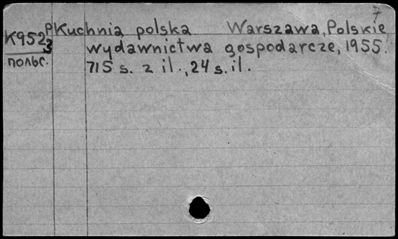 7
PKuchnia polska. Warszawa, Polskie
K9523
wydawnictwa gospodarcze, 1955.
польс.
715 s. z il., 24 s. il.